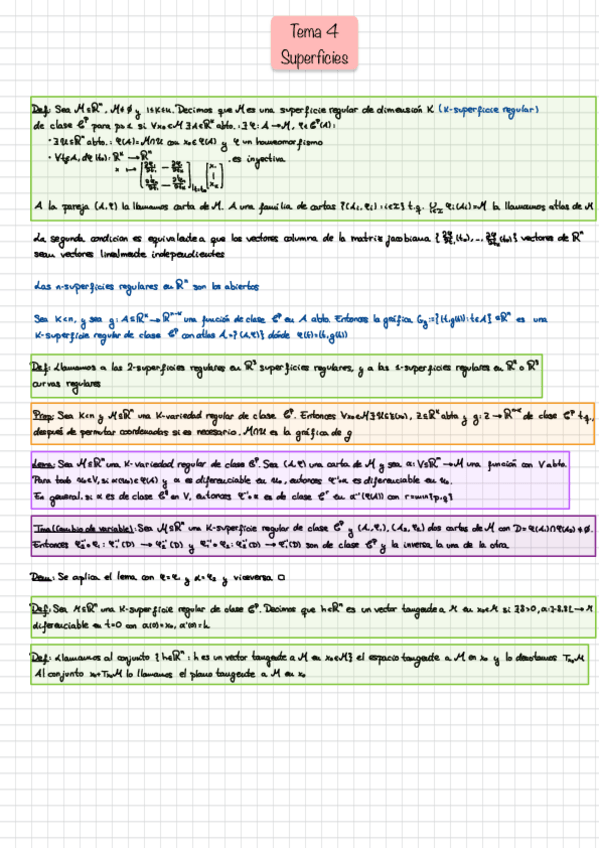 Tema 4
Superficies
Def: Sea M⊆ℝⁿ, M≠∅ y 1≤K≤n. Decimos que M es una superficie regular de dimensión K (K-superficie regular)
de clase 𝒞ᵖ para p≥1 si ∀x₀∈M ∃A⊆ℝᴷ abto. ∃φ: A→M, φ∈𝒞ᵖ(A):
· ∃U⊆ℝⁿ abto.: φ(A)=M∩U con x₀∈φ(A) y φ un homeomorfismo
· ∀t₀∈A, dφ(t₀): ℝᴷ → ℝⁿ es inyectiva
A la pareja (A,φ) la llamamos carta de M. A una familia de cartas {(Aᵢ,φᵢ): i∈I} t.q. ∪ φᵢ(Aᵢ)=M la llamamos atlas de M
La segunda condición es equivalente a que los vectores columna de la matriz jacobiana { (t₀),..., (t₀)} vectores de ℝⁿ
sean vectores linealmente independientes
Las n-superficies regulares en ℝⁿ son los abiertos
Sea K<n, y sea g: A⊆ℝᴷ→ℝⁿ⁻ᴷ una función de clase 𝒞ᵖ en A abto. Entonces la gráfica, Gg:={(t,g(t)): t∈A}⊆ℝⁿ es una
K-superficie regular de clase 𝒞ᵖ con atlas A={(A,φ)} dónde φ(t)=(t,g(t))
Def: Llamamos a las 2-superficies regulares en ℝ³ superficies regulares, y a las 1-superficies regulares en ℝ² o ℝ³
curvas regulares
Prop: Sea K<n y M⊆ℝⁿ una K-variedad regular de clase 𝒞ᵖ. Entonces ∀x₀∈M ∃U∈ℰ(x₀), Z⊆ℝᴷ abto y g: Z→ℝⁿ⁻ᴷ de clase 𝒞ᵖ t.q.,
después de permutar coordenadas si es necesario, M∩U es la gráfica de g
Lema: Sea M⊆ℝⁿ una K-variedad regular de clase 𝒞ᵖ. Sea (A,φ) una carta de M y sea α: V⊆ℝᵐ→M una función con V abto.
Para todo u₀∈V, si α(u₀)∈φ(A) y α es diferenciable en u₀, entonces φ⁻¹∘α es diferenciable en u₀.
En general, si α es de clase 𝒞^q en V, entonces φ⁻¹∘α es de clase 𝒞ʳ en α⁻¹(φ(A)) con r=min{p,q}
Tma (Cambio de variable): Sea M⊆ℝⁿ una K-superficie regular de clase 𝒞ᵖ y (A₁,φ₁), (A₂,φ₂) dos cartas de M con D=φ₁(A₁)∩φ₂(A₂)≠∅.
Entonces φ₂⁻¹∘φ₁: φ₁⁻¹(D) → φ₂⁻¹(D) y φ₁⁻¹∘φ₂: φ₂⁻¹(D) → φ₁⁻¹(D) son de clase 𝒞ᵖ y la inversa la una de la otra.
Dem: Se aplica el lema con φ=φ₁ y α=φ₂ y viceversa □
Def: Sea M⊆ℝⁿ una K-superficie regular de clase 𝒞ᵖ. Decimos que h∈ℝⁿ es un vector tangente a M en x₀∈M si ∃δ>0, α:]-δ,δ[→M
diferenciable en t=0 con α(0)=x₀, α'(0)=h
Def: Llamamos al conjunto {h∈ℝⁿ: h es un vector tangente a M en x₀∈M} el espacio tangente a M en x₀ y lo denotamos Tx₀M
Al conjunto x₀+Tx₀M lo llamamos el plano tangente a M en x₀